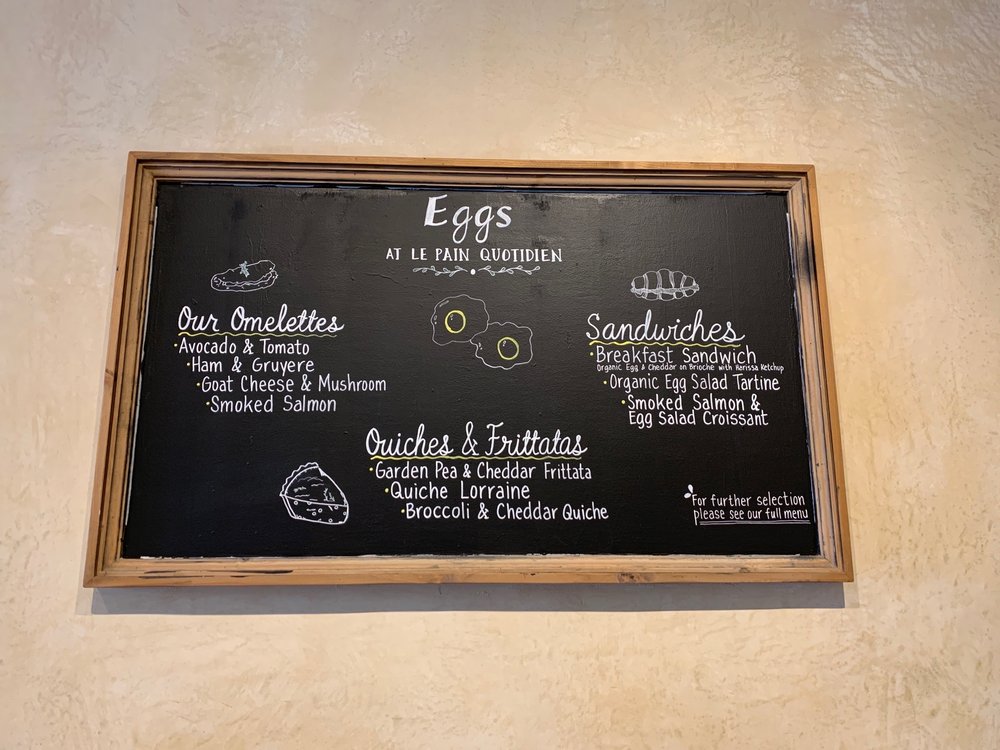 Eggs
AT LE PAIN QUOTIDIEN
Our Omelettes
•Avocado & Tomato
•Ham & Gruyere
•Goat Cheese & Mushroom
•Smoked Salmon
Quiches & Frittatas
•Garden Pea & Cheddar Frittata
•Quiche Lorraine
•Broccoli & Cheddar Quiche
Sandwiches
•Breakfast Sandwich
Organic Egg & Cheddar on Brioche with Harissa Ketchup
•Organic Egg Salad Tartine
•Smoked Salmon &
Egg Salad Croissant
For further selection
please see our full menu